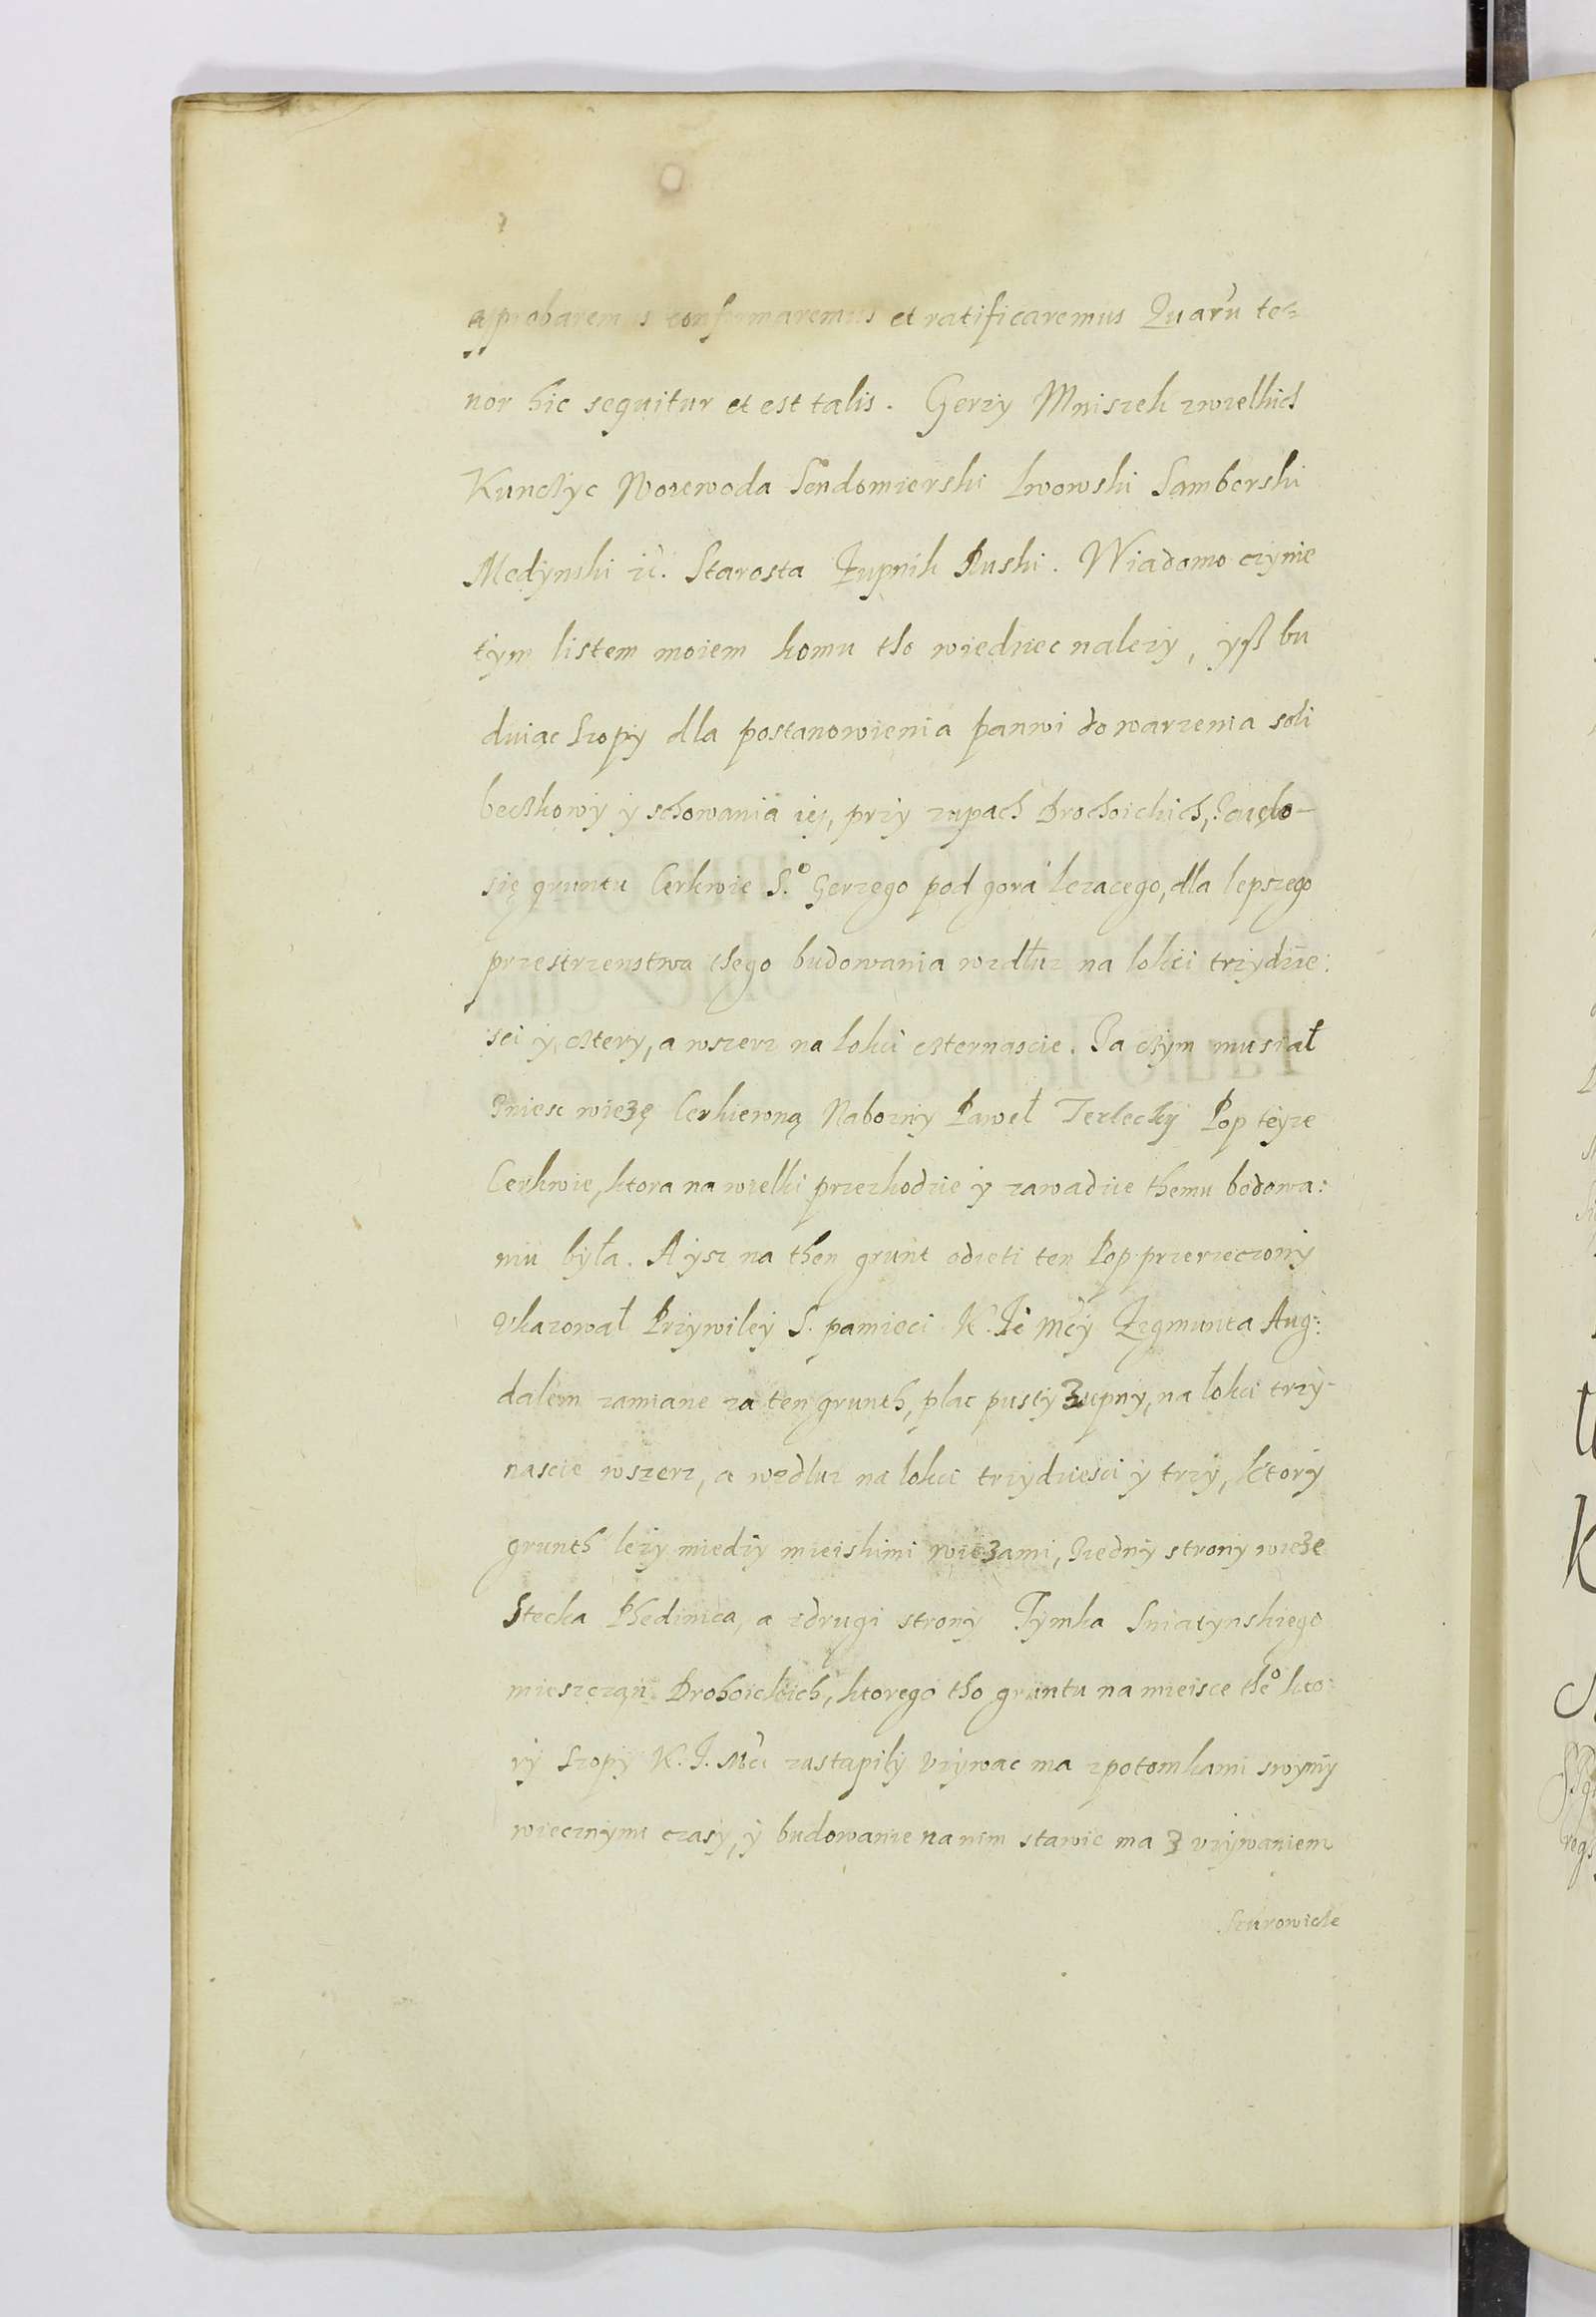 approbaremus confirmaremus et ratificaremus Quarũ te=
nor hic sequitur et est talis. Gerzy Mniszek zwielkich
Kunczyc Woiewoda Sendomierski Lwowski Samborski
Medynski ić. Starosta Zupnik Ruski. Wiadomo czynie
tym listem moiem komu tho wiedziec nalezy, yß bu
duiąc Szopy dla postanowienia panwi do warzenia soli
beczkowy y schowania iey, przy zupach Drochoickich, Zaięło-
się gruntu Cerkwie S.º Gerzego pod gora lezacego, dla lepszego
przestrzenstwa thego budowania wzdłuz na lokci trzydzie:
sci y cztery, a wszerz na lokci czternascie. Za czym musiał
Zniesc wieżę Cerkiewną Nabozny Paweł Terlecky Pop teyze
Cerkwie, ktora na wielki przezkodzie y zawadzie themu bodowa:
niu była. A ysz na then grunt odzieti ten Pop przerzeczony
Vkazował Przywiley S. pamieci K. Je Mćy Zygmunta Aug:
dalem zamiane za ten grunth, plac pusty Zupny, na łokci trzy-
nascie wszerz, a wzdluz na lokci trzydziesci y trzy, ktory
grunth lezy miedzy mieiskimi wieżami, Ziedny strony wieże
Stecka Phedinica, a zdrugi strony Tymka Sniatynskiego
mieszczan Drohoickich, ktorego tho gruntu na mieisce theº kto
ry Szopy K. J. Mći zastapiły Vzywac ma zpotomkami swymy
wiecznymi czasy, y budowanie na nim stawic ma z vzywaniem